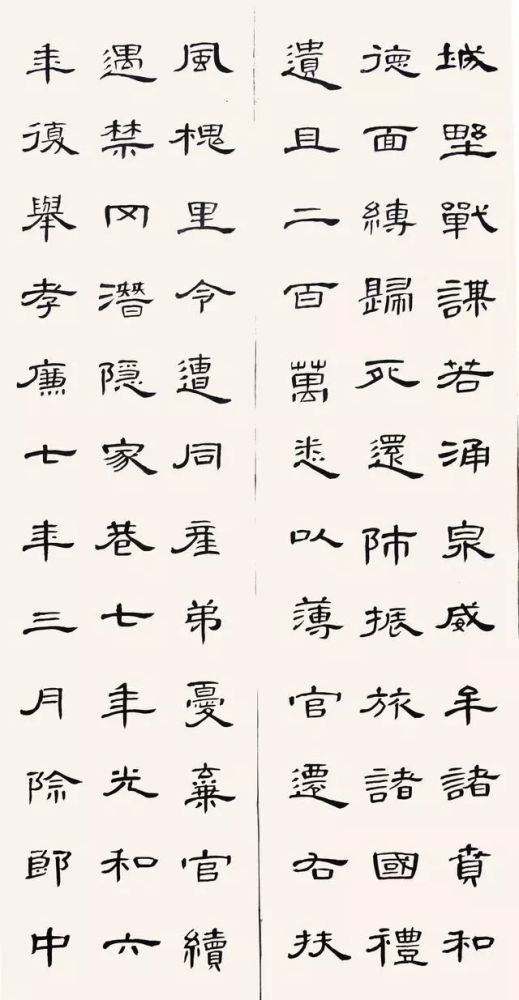 城野戰謀若涌泉威牟諸賁和
德面縛歸死還師振旅諸國禮
遺且二百萬悉以薄官遷右扶
風槐里令遭同產弟憂棄官續
遇禁网潛隱家巷七年光和六
年復舉孝廉七年三月除郎中